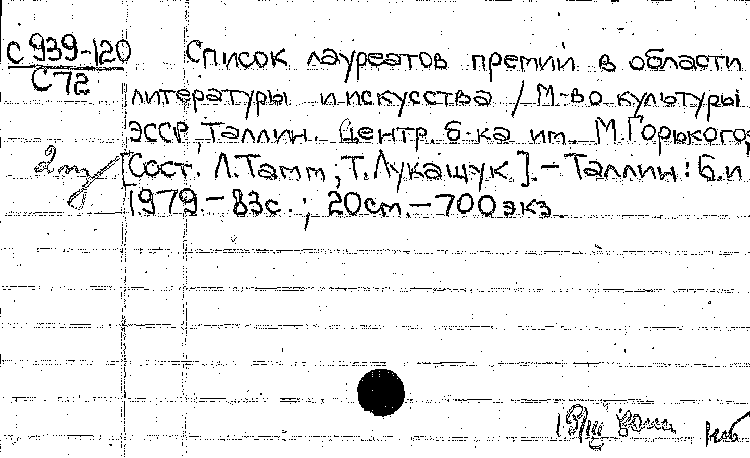 С 939-120 Список лауреатов премий в области
С 72
литературы и искусства / М-во культуры
ЭССР, Таллин. Центр. б-ка им. М.Горького;
[Сост. Л.Тамм; Т.Лукащук]. - Таллин: Б.и
1979. - 83с.; 20см. - 700 экз.